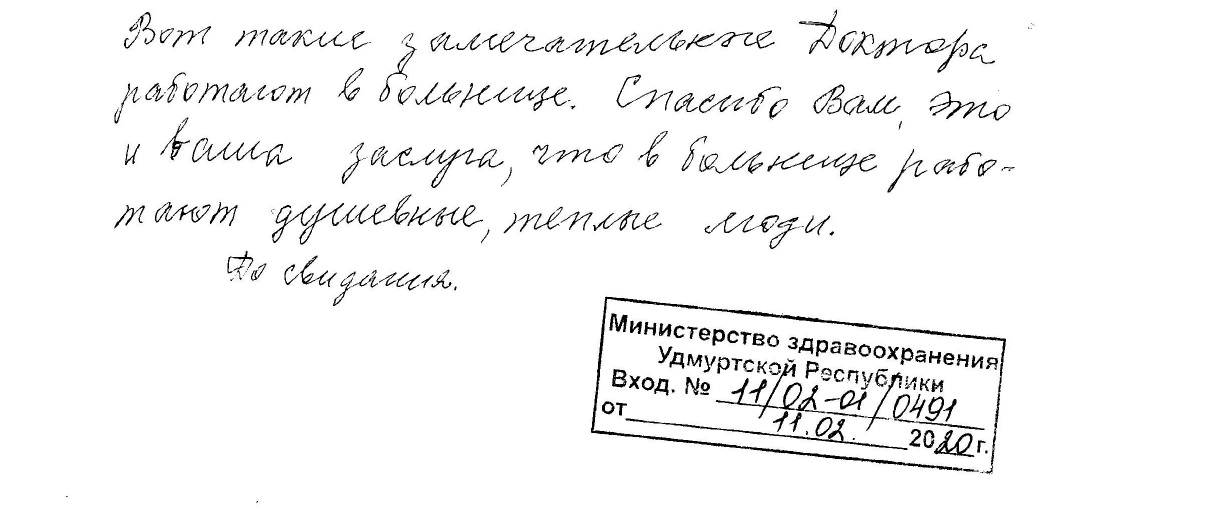 Вот такие замечательные Доктора
работают в больнице. Спасибо Вам, это
и ваша заслуга, что в больнице рабо-
тают душевные, теплые люди.
До свидания.
Министерство здравоохранения
Удмуртской Республики
Вход. № 11/02-01/0491
от 11.02. 2020 г.